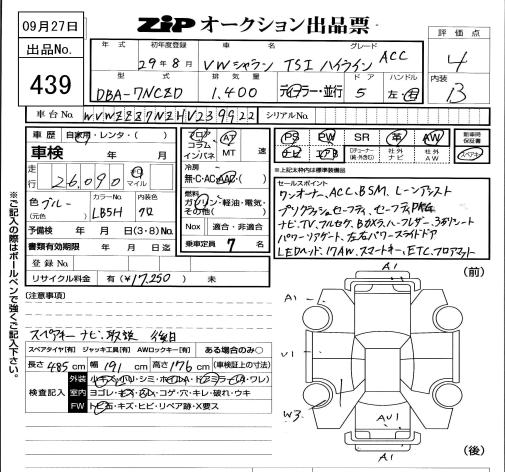 09月27日
ZIP オークション出品票
評価点
4
出品No.
439
年式 初年度登録 車名 グレード
29年8月 VWシャラン TSI ハイライン ACC
型式 排気量 ドア ハンドル
DBA-7NCZD 1.400 ディーラー・並行 5 左・右
内装
B
車台No. WVWZZZ7NZHV239922 シリアルNo.
車歴 自家用・レンタ・( )
車検 年 月
走行 26,090 マイル
色 ブルー カラーNo. LB5H 内装色 クロ
(元色)
予備検 年 月 日(3・8)No.
書類有効期限 年 月 日迄
登録No.
リサイクル料金 有(¥17,250) 未
フロア AT
コラム
インパネ MT 速
冷房
無・C・AC・AAC・( )
燃料
ガソリン・軽油・電気・
その他( )
Nox 適合・非適合
乗車定員 7 名
PS PW SR 革 AW
ナビ エアB 社外ナビ 社外AW
新車時保証書
スペアキー
*上記太枠内は標準装備品
セールスポイント
ワンオーナー、ACC、BSM、レーンアシスト
ナビ、TV、フルセグ、Bカメラ、ハーフレザー、3列シート
パワーリアゲート、左右パワースライドドア
LEDヘッド、17AW、スマートキー、ETC、フロアマット
※ご記入の際はボールペンで強くご記入下さい。
[注意事項]
スペアキー ナビ、取説 後日
スペアタイヤ[有] ジャッキ工具[有] AWロックキー[有] ある場合のみ○
長さ 485 cm 幅 191 cm 高さ 176 cm (車検証上の寸法)
検査記入
外装 小キズ・小ハリ・シミ・ホイルA・ドアミラー(A・ワレ)
室内 ヨゴレ・キズ・スレ・コゲ・穴・キレ・破れ・ウキ
FW トビ石・キズ・ヒビ・リペア跡・X要ス
A1
(前)
A1
U1
W3
AU1
A1
(後)